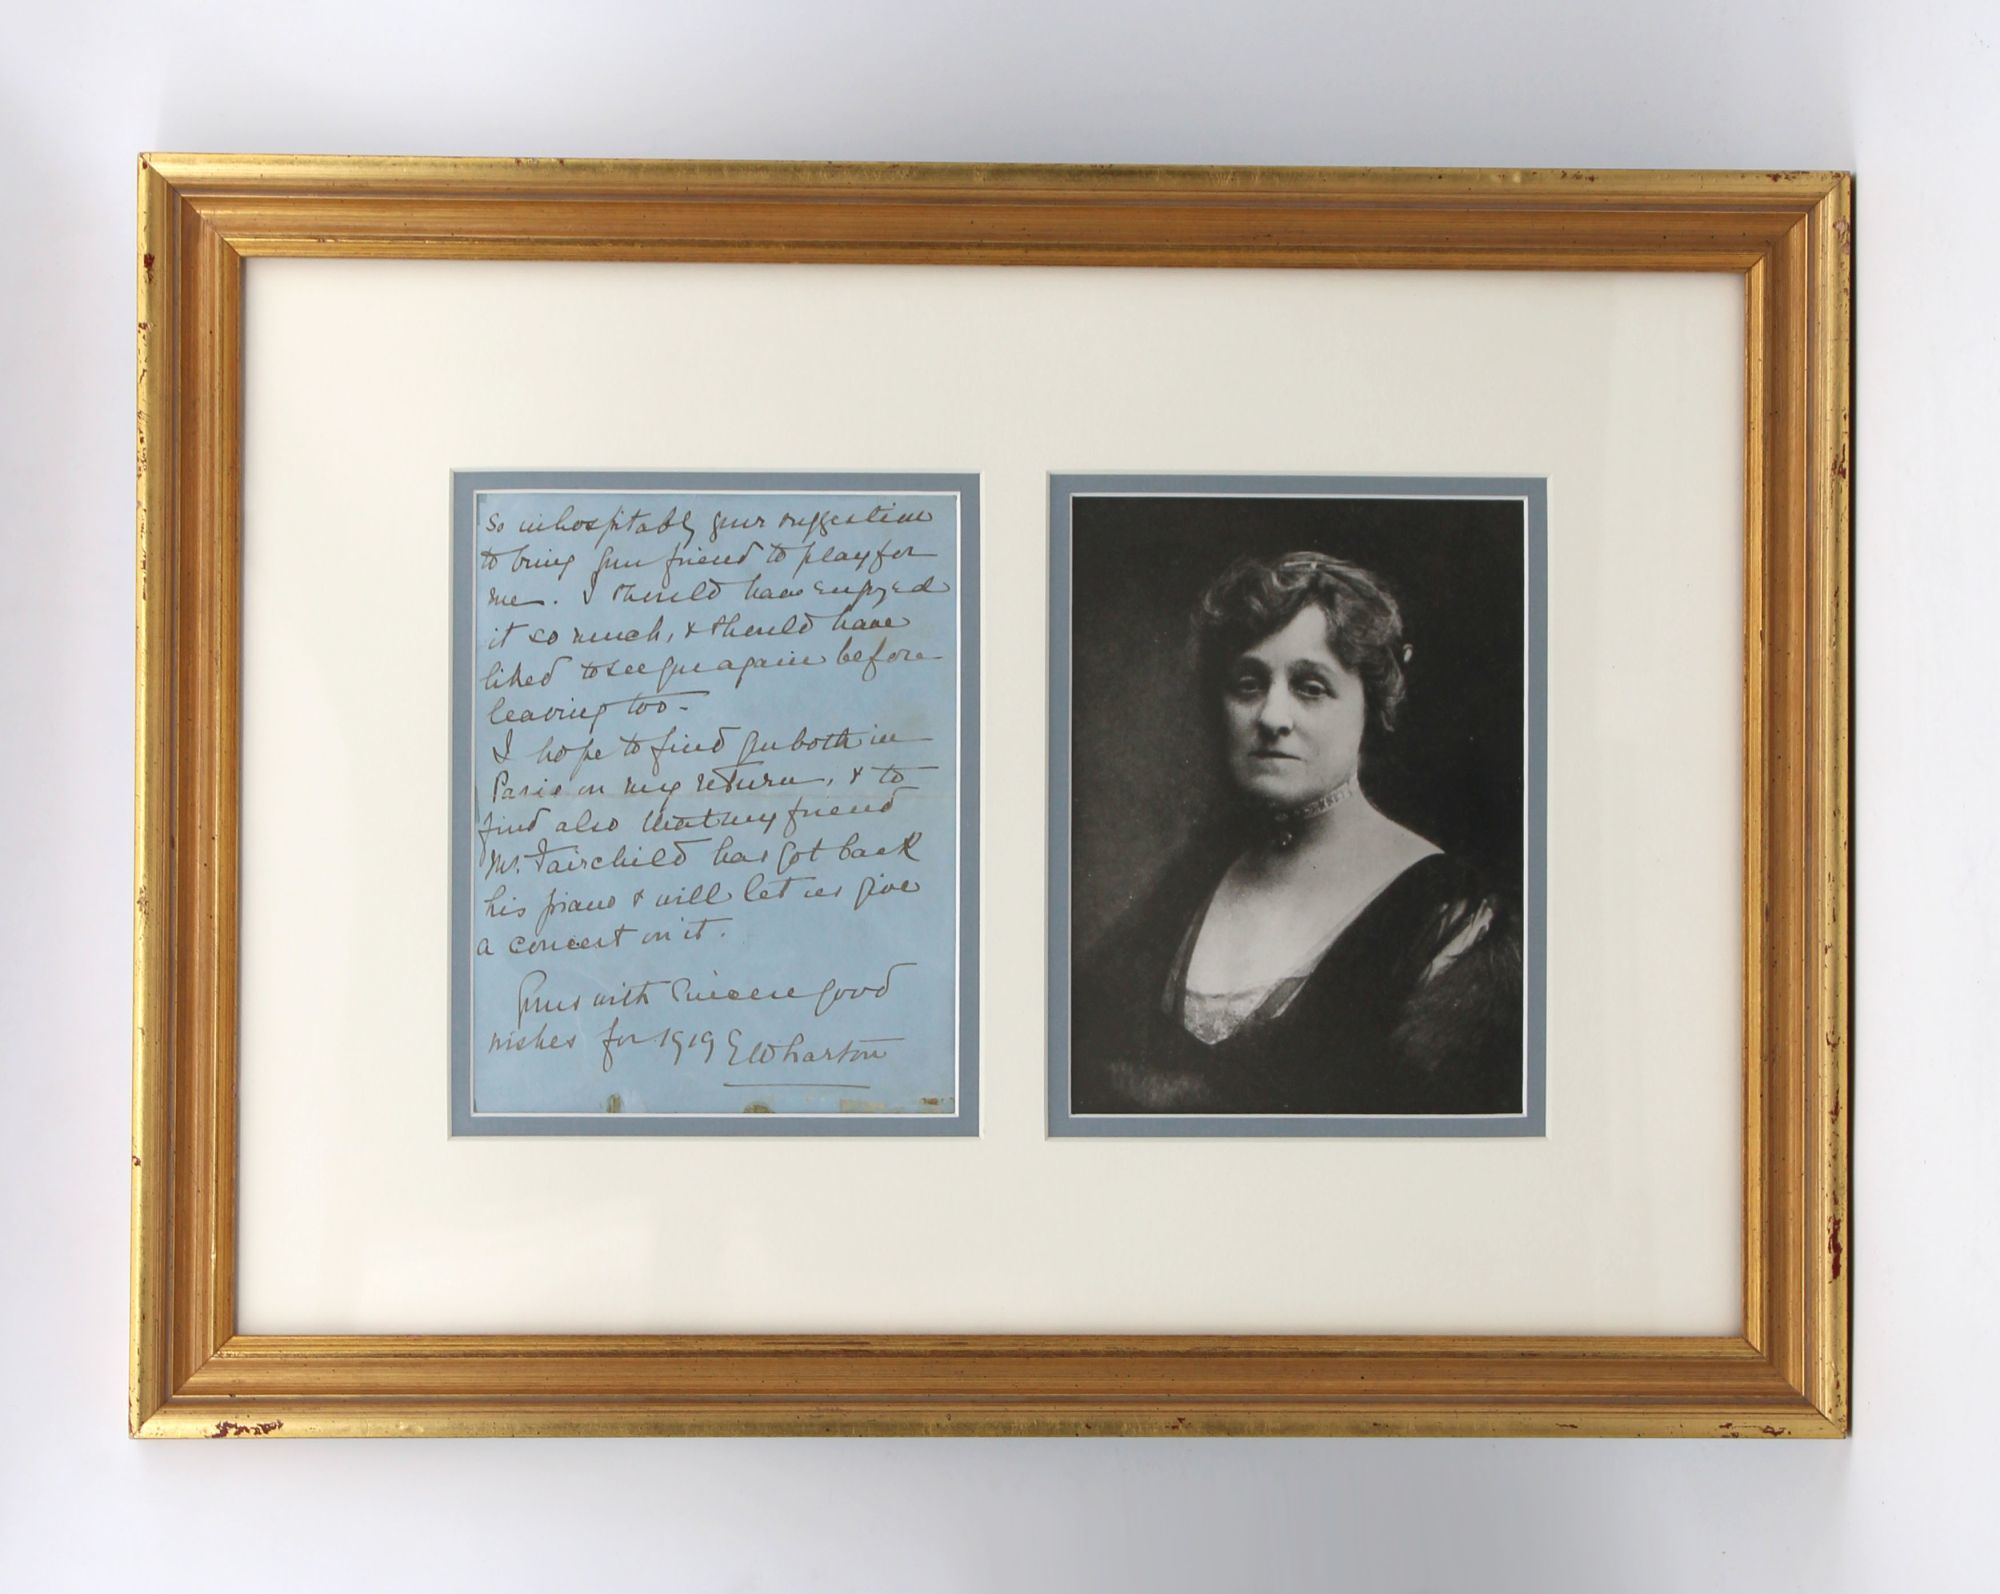 so inhospitably your suggestion
to bring your friend to play for
me. I should have enjoyed
it so much, & should have
liked to see you again before
leaving too -
I hope to find you both in
Paris on my return, & to
find also that my friend
Mr. Fairchild has got back
his piano & will let us give
a concert on it.
Yours with sincere good
wishes for 1919 EWharton